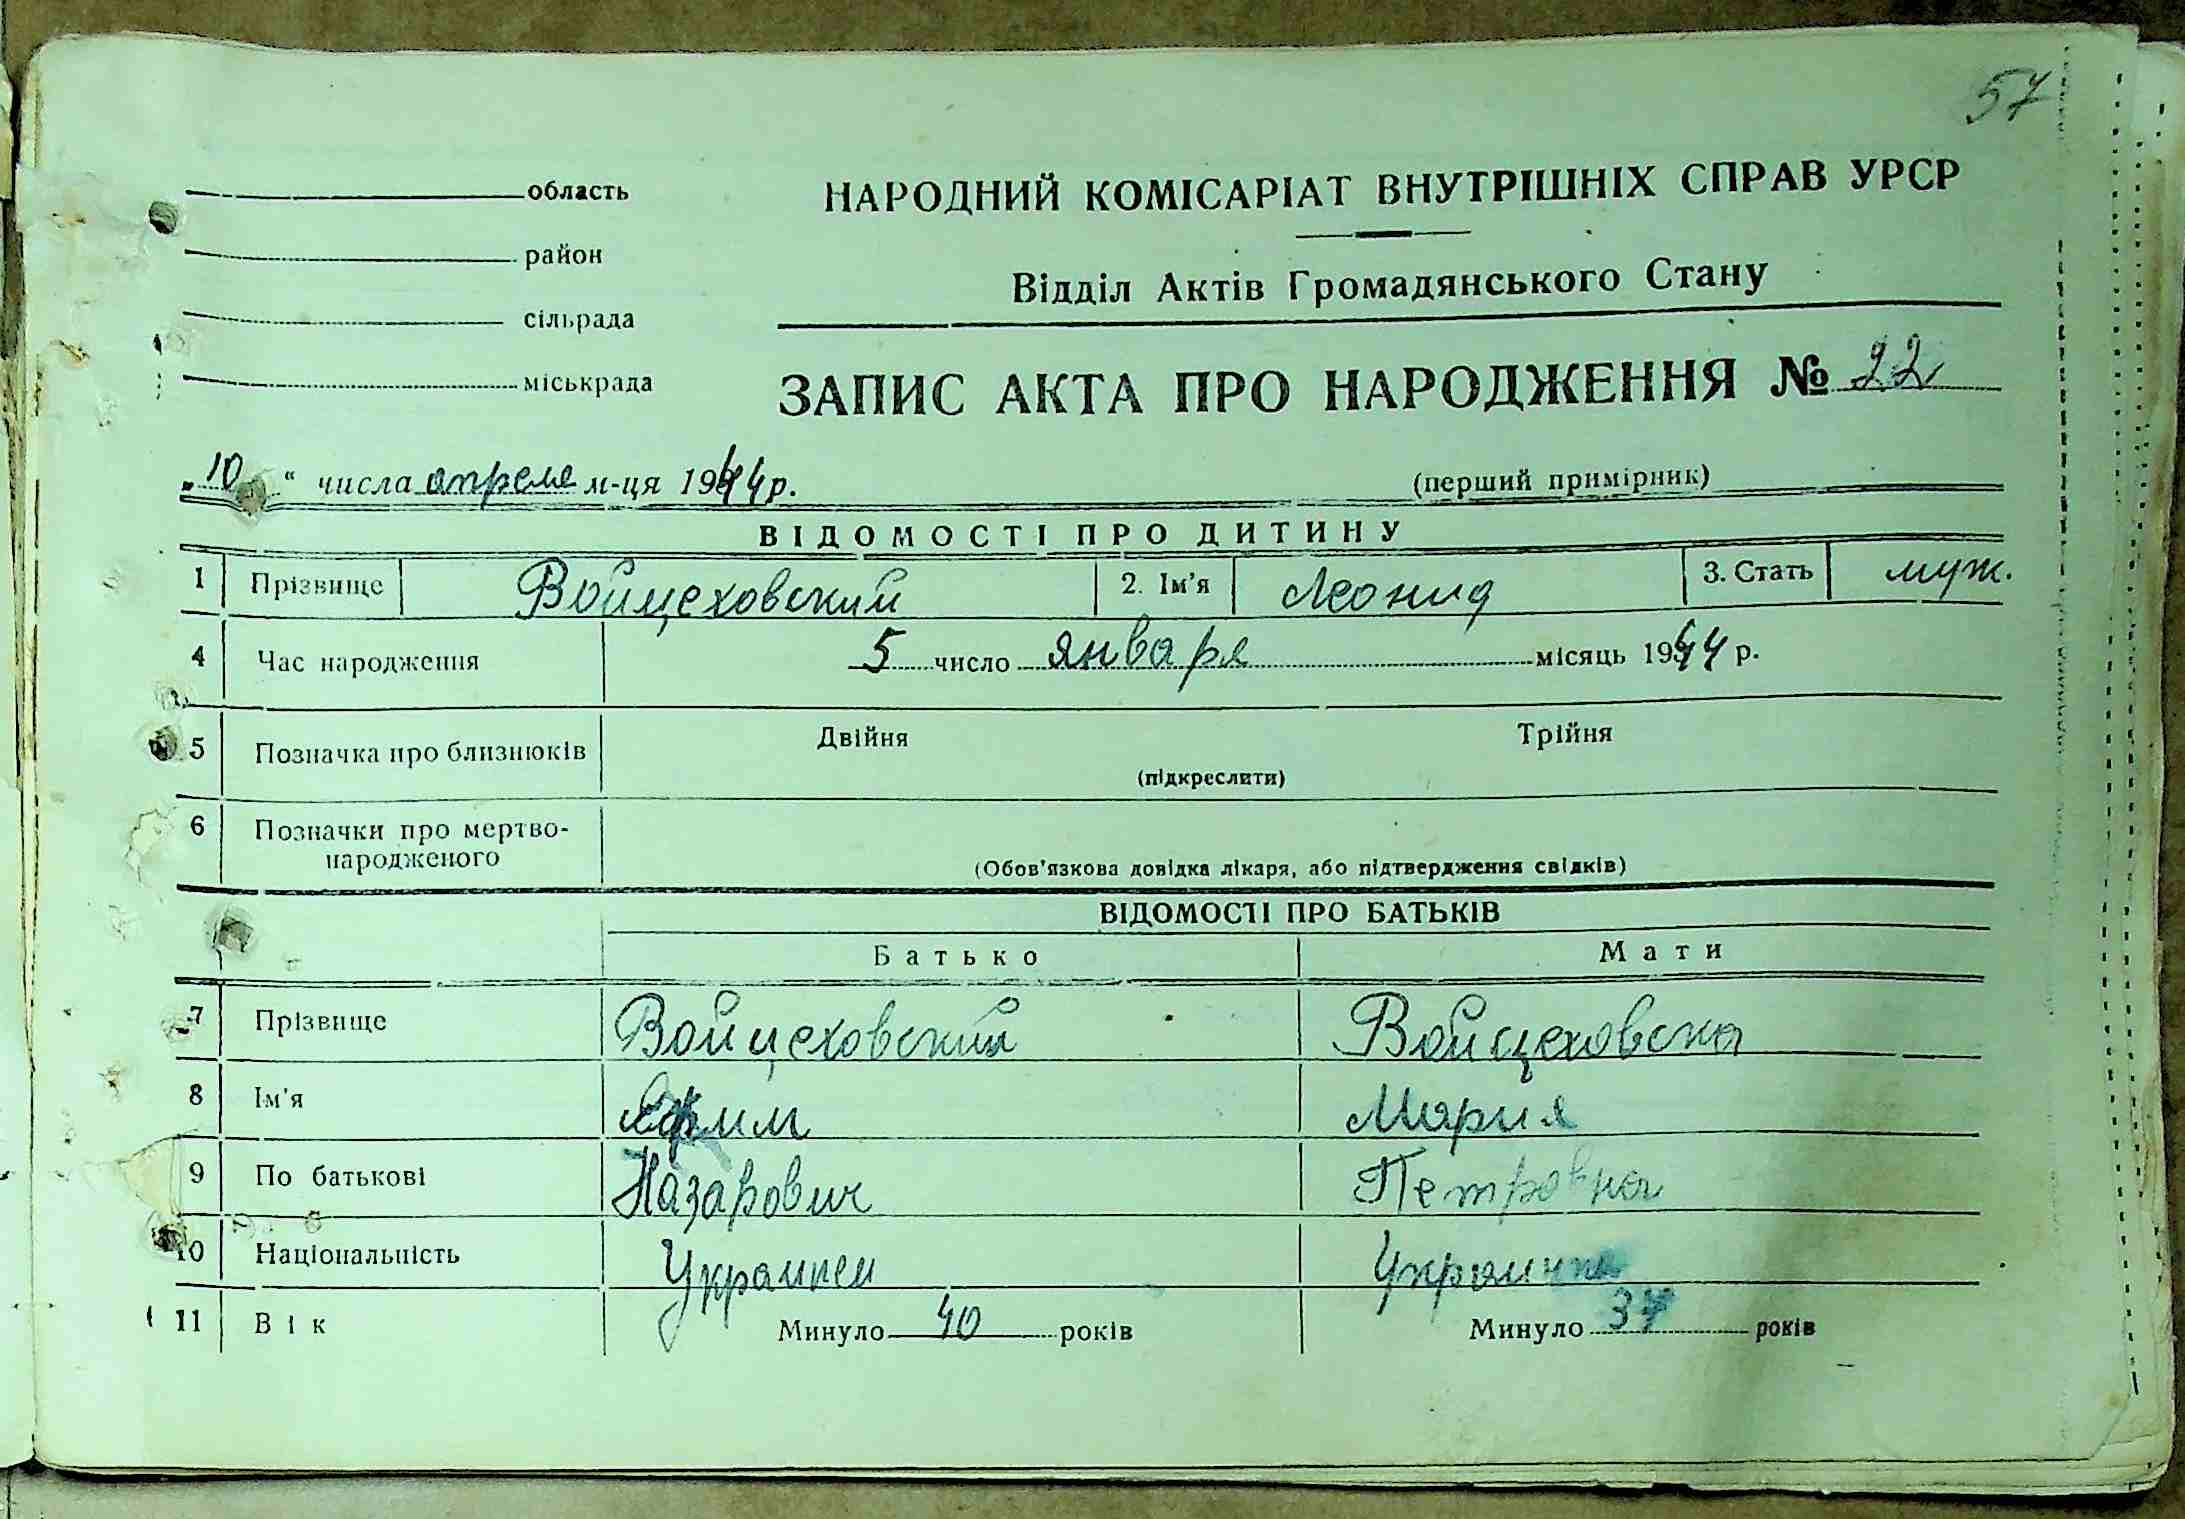 57
область
район
сільрада
міськрада
НАРОДНИЙ КОМІСАРІАТ ВНУТРІШНІХ СПРАВ УРСР
Відділ Актів Громадянського Стану
ЗАПИС АКТА ПРО НАРОДЖЕННЯ № 22
„ 10 “ числа апреля м-ця 1944 р.
(перший примірник)
ВІДОМОСТІ ПРО ДИТИНУ
1 Прізвище Войцеховский 2. Ім'я Леонид 3. Стать муж.
4 Час народження 5 число января місяць 1944 р.
5 Позначка про близнюків Двійня Трійня
(підкреслити)
6 Позначки про мертво-
народженого
(Обов'язкова довідка лікаря, або підтвердження свідків)
ВІДОМОСТІ ПРО БАТЬКІВ
Батько Мати
7 Прізвище Войцеховский Войцеховска
8 Ім'я Мария
9 По батькові Назарович Петровна
10 Національність
11 Вік Минуло 40 років Минуло 37 років